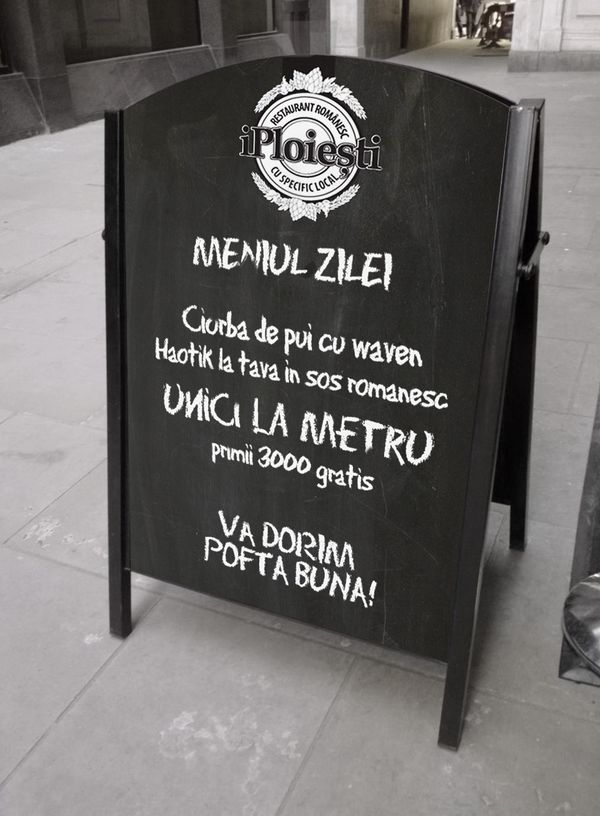 RESTAURANT ROMÂNESC
iPloiești
CU SPECIFIC LOCAL
MENIUL ZILEI
Ciorba de pui cu waven
Haotik la tava in sos romanesc
UNICi LA METRU
primii 3000 gratis
VA DORIM
POFTA BUNA!